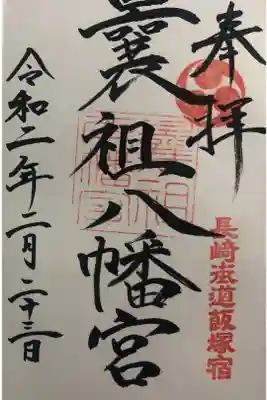 奉拝
長崎街道飯塚宿
曩祖八幡宮
令和二年二月二十三日